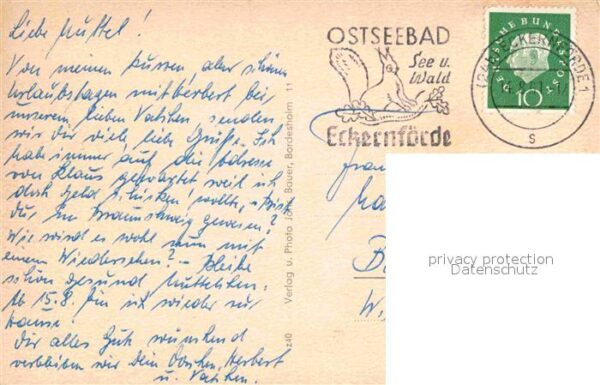 Liebe Muttel!
Von meinen kurzen aber schönen
Urlaubstagen mit Herbert bei
unserem lieben Vatichen senden
wir dir viele liebe Grüße. Ich
habe immer auf die Adresse
von Klaus gewartet weil ich
doch Geld schicken wollte, bist
du in Braunschweig gewesen?
Wie wird es wohl nun mit
einem Wiedersehen? - Bleibe
schön gesund Muttelchen.
Ab 15.8. bin ich wieder zur
Hause!
Dir alles Gute wünschend
verbleiben wir Dein Herbert
u. Vatichen.
z40 Verlag u. Photo Jahr. Bauer, Bordesholm 11
OSTSEEBAD
See u.
Wald
Eckernförde
DEUTSCHE BUNDESPOST
10
ECKERNFÖRDE 1
s
Frau
B
W.
privacy protection
Datenschutz